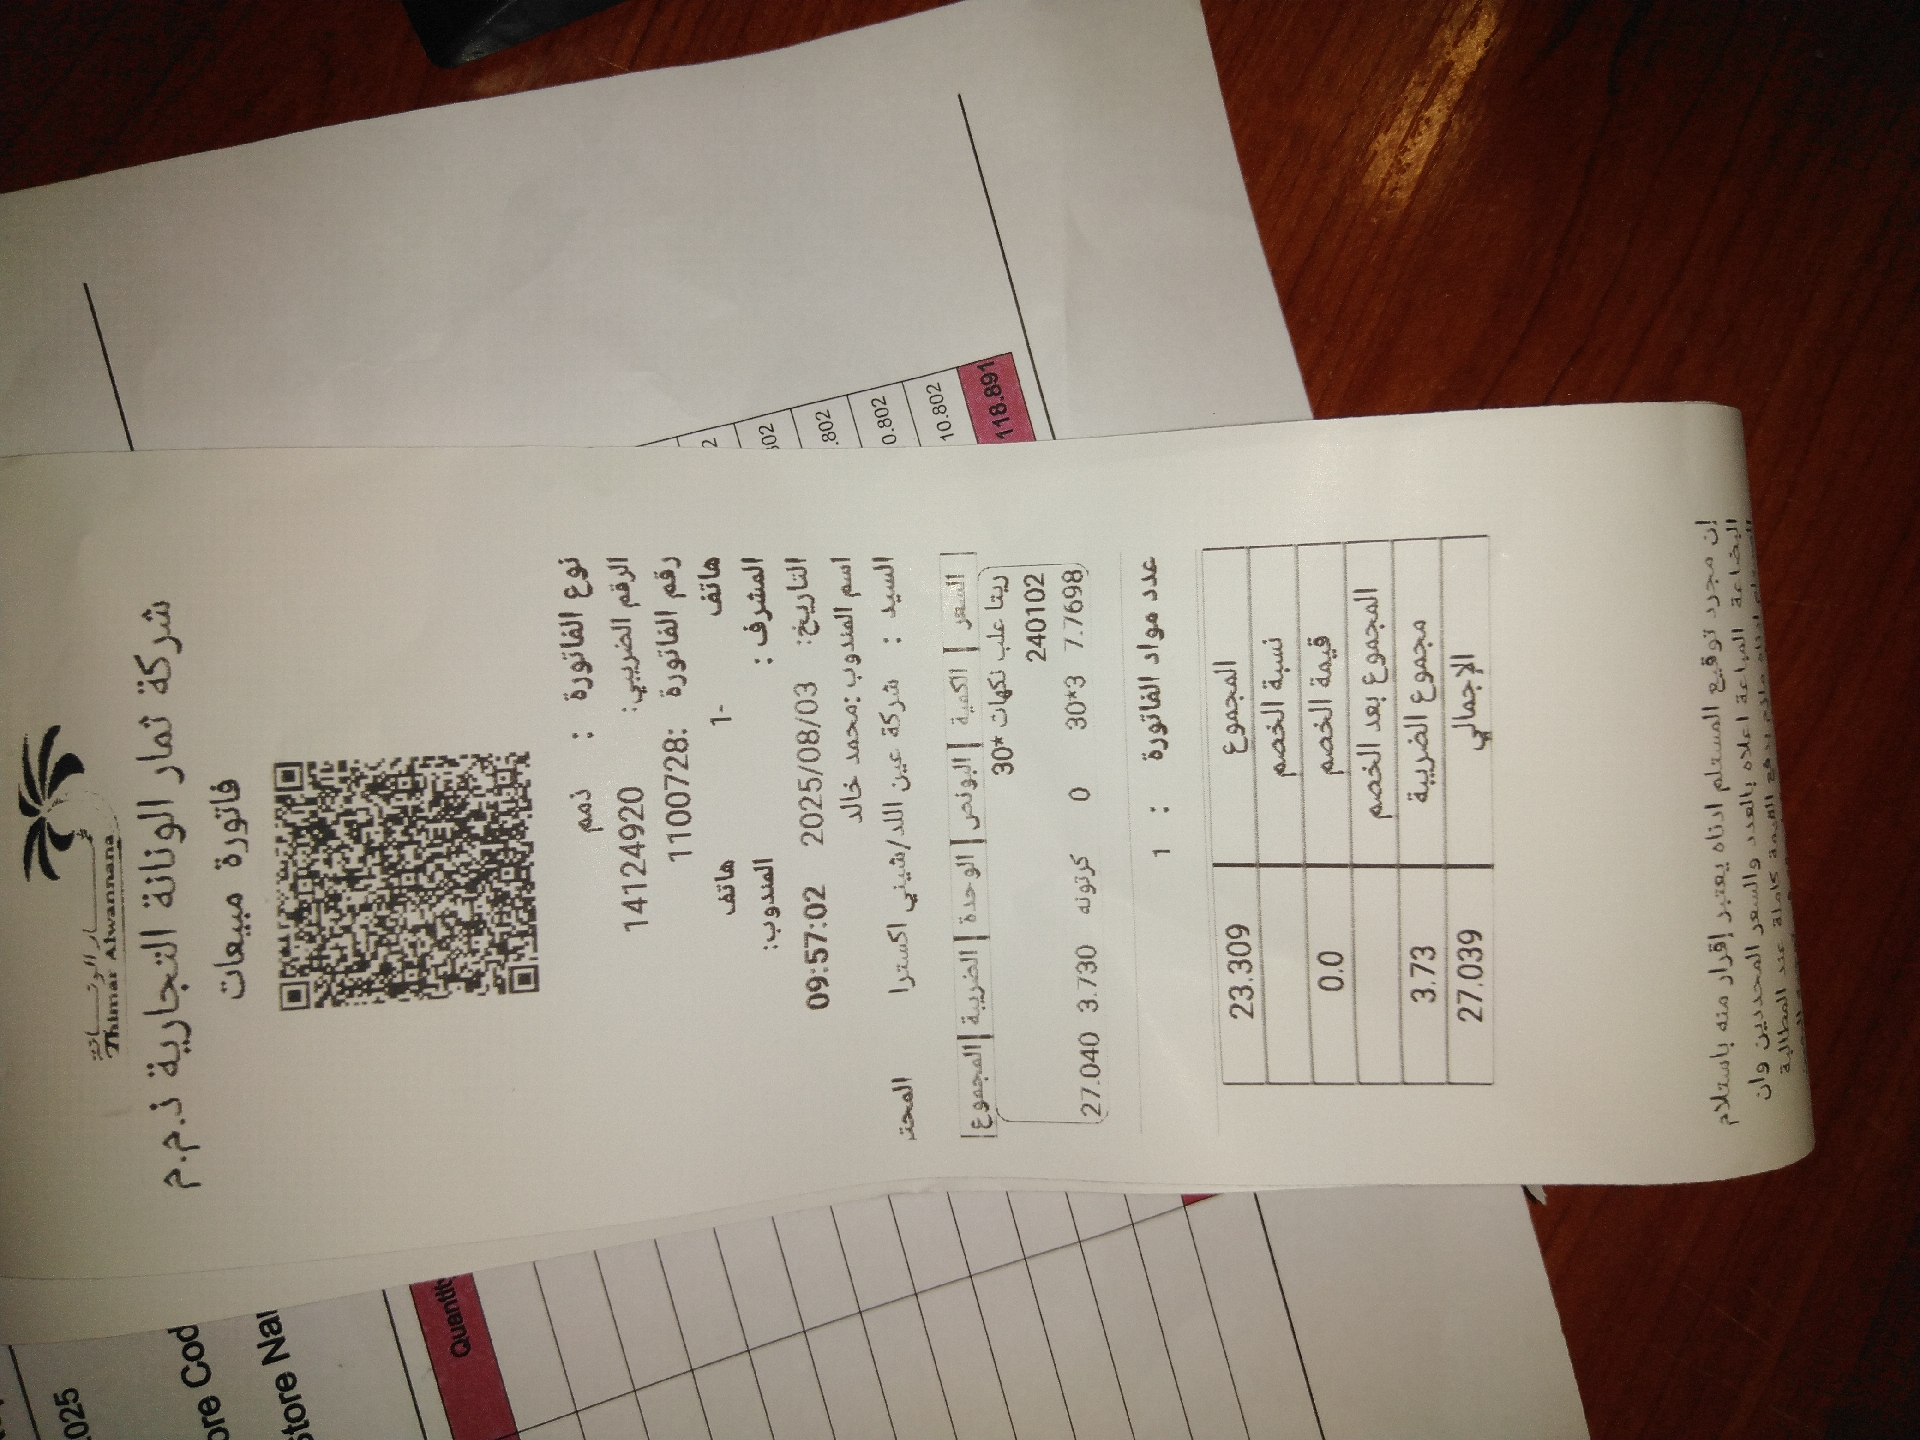 Thimar Alwannana
شركة ثمار الونانة التجارية ذ.م.م
فاتورة مبيعات
نوع الفاتورة : ذمم
الرقم الضريبي: 14124920
رقم الفاتورة :1100728
هاتف 1-
هاتف
المشرف : المندوب:
التاريخ: 2025/08/03 09:57:02
اسم المندوب :محمد خالد
السيد : شركة عين اللد/شيني اكسترا المحتـ
السعر | الكمية | البونص | الوحدة | الضريبة | المجموع
ريتا علب نكهات *30
240102
7.7698 30*3 0 كرتونه 3.730 27.040
عدد مواد الفاتورة : 1
المجموع 23.309
نسبة الخصم
قيمة الخصم 0.0
المجموع بعد الخصم
مجموع الضريبة 3.73
الإجمالي 27.039
إن مجرد توقيع المستلم ادناه يعتبر إقرار منه باستلام
البضاعة المباعة اعلاه بالعدد والسعر المحددين وان
القيمة كاملة عند المطالبة
.802
0.802
10.802
118.891
Quantity
025
ore Cod
Store Na